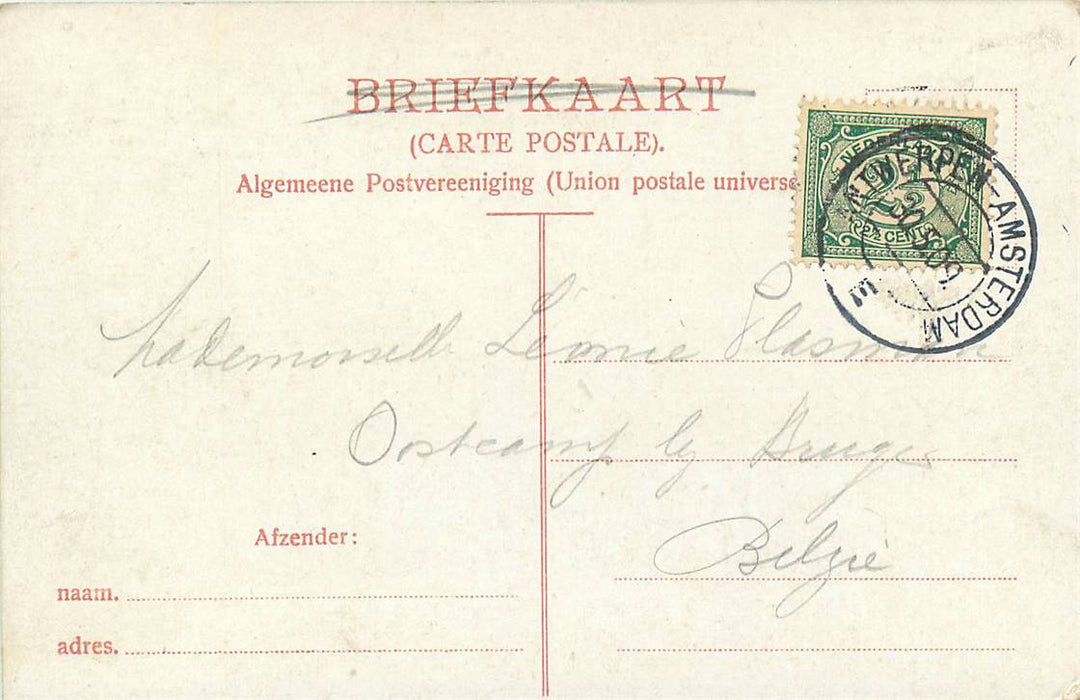 BRIEFKAART
(CARTE POSTALE).
Algemeene Postvereeniging (Union postale universe
NEDERLAND
2½
2½ CENT
ANTWERPEN-AMSTERDAM
E
Mademoiselle Léonie Plasman
Oostcamp bij Bruges
België
Afzender:
naam.
adres.